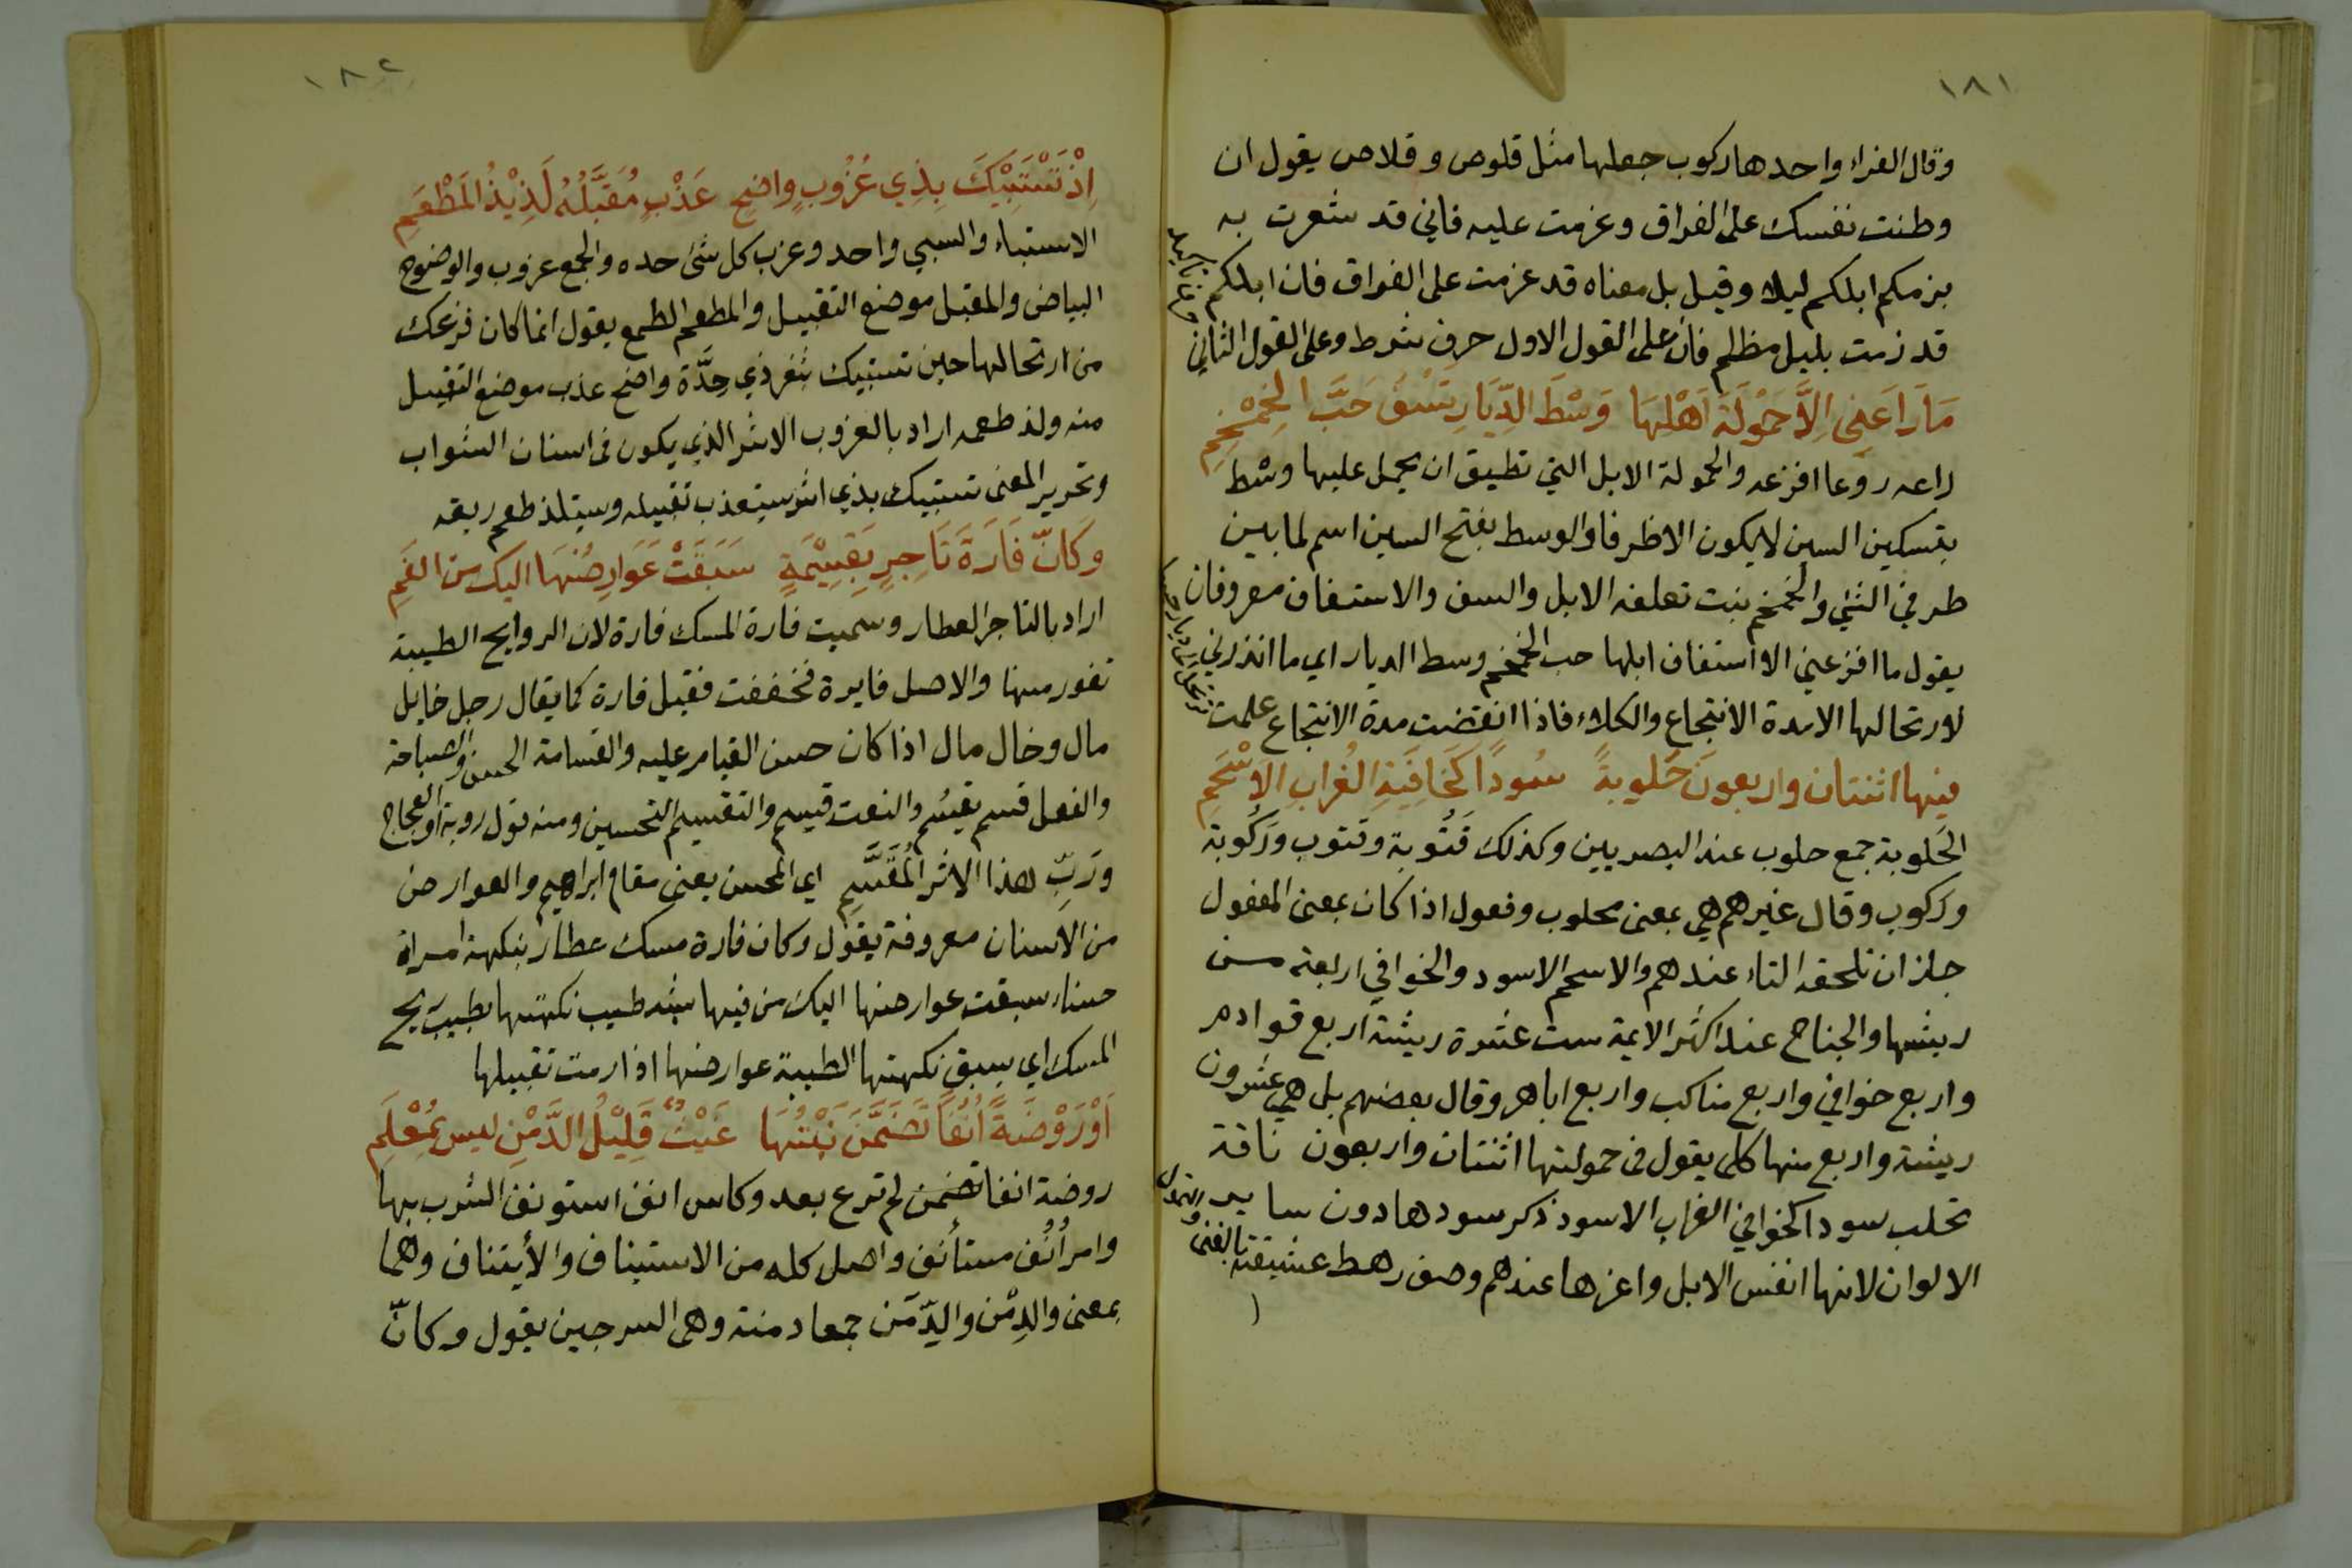 ١٨١
وقال الفراء واحدها ركوب جعلها مثل قلوص وقلاص يقول ان
وطنت نفسك على الفراق وعزمت عليه فاني قد شعرت به
بزمكم ابلكم ليلا وقيل بل معناه قد عزمت على الفراق فان ابلكم
قد زمت بليل مظلم فان على القول الاول حرف شرط وعلى القول الثاني
حرف تاكيد
مَا رَاعَنِي اِلَّا حَمُوْلَةُ اَهْلِهَا وَسْطَ الدِّيَارِ تَسَفُّ حَبَّ الخِمْخِمِ
راعه روعا افزعه والحمولة الابل التي تطيق ان يحمل عليها وسْط
بتسكين السين لا يكون الا ظرفا والوسط بفتح السين اسم لما بين
طرفي الشئ والخمخم نبت تعلفه الابل والسف والاستفاف معروفان
يقول ما افزعني الا استفاف ابلها حب الخمخم وسط الديار اي ما انذرني
لارتحالها الا مدة الانتجاع والكلاء فاذا انقضت مدة الانتجاع علمت
فيها اثنتان واربعون حَلوبةً سُودًا كَخافِيَةِ الغُرابِ الاَسْحَمِ
الحَلوبة جمع حلوب عند البصريين وكذلك قَتُوبة وقتوب ورَكُوبة
وركوب وقال غيرهم هي بمعنى محلوب وفعول اذا كان بمعنى المفعول
جاز ان تلحقه التاء عندهم والاسحم الاسود والخوافي اربعة من
ريشها والجناح عند اكثر الايمة ست عشرة ريشة اربع قوادم
واربع خوافي واربع مناكب واربع اباهر وقال بعضهم بل هي عشرون
ريشة واربع منها كلى يقول في حمولتها اثنتان واربعون ناقة
تحلب سودا كخوافي الغراب الاسود ذكر سودها دون ساير
الالوان لانها انفس الابل واعزها عندهم وصف رهط عشيقته بالغنى و
التمول
١٨٢
اِذْ تَسْتَبِيْكَ بِذِي غُرُوبٍ واضِحٍ عَذْبٍ مُقَبَّلُهُ لَذِيْذُ المَطْعَمِ
الاستباء والسبي واحد وغرب كل شئ حده والجمع غروب والوضوح
البياض والمقبل موضع التقبيل والمطعم الطمع يقول انما كان فزعك
من ارتحالها حين تستبيك بثغر ذي حِدَّة واضح عذب موضع التقبيل
منه ولذ طعمه اراد بالغروب الاشر الذي يكون في اسنان الشواب
وتحرير المعنى تستبيك بذي اشر يستعذب تقبيله ويستلذ طعم ريقه
وكَانّ فَارَةَ تَاجِرٍ بِقَسِيْمَةٍ سَبَقَتْ عَوَارِضُهَا اليك من الفَمِ
اراد بالتاجر العطار وسميت فارة المسك فارة لان الروايح الطيبة
تفور منها والاصل فايرة فخففت فقيل فارة كما يقال رجل خايل
مال وخال مال اذا كان حسن القيام عليه والقسامة الحسن والصباحة
والفعل قسم يقسُم والنعت قسيم والتقسيم التحسين ومنه قول روبة او العجاج
ورَبِّ هذا الاثر المُقَسَّمِ اي المحسن يعنى مقام ابراهيم والعوارض
من الاسنان معروفة يقول وكان فارة مسك عطار بنكهة امراة
حسناء سبقت عوارضها اليك من فيها شبه طيب نكهتها بطيب ريح
المسك اي يسبق نكهتها الطيبة عوارضها اذا رمت تقبيلها
اَوْ رَوْضَةً اُنُفًا تَضَمَّنَ نَبْتُهَا غَيْثٌ قَلِيْلُ الدِّمْنِ ليس بمُعْلَمِ
روضة انفا تضمن لم ترع بعد وكاس انف استونف الشرب بها
وامر اُنُف مستأنف واصل كله من الاستيناف والأيتناف وهما
بمعنى والدِمْن والدِّمَن جمعا دمنة وهي السرجين يقول وكانّ